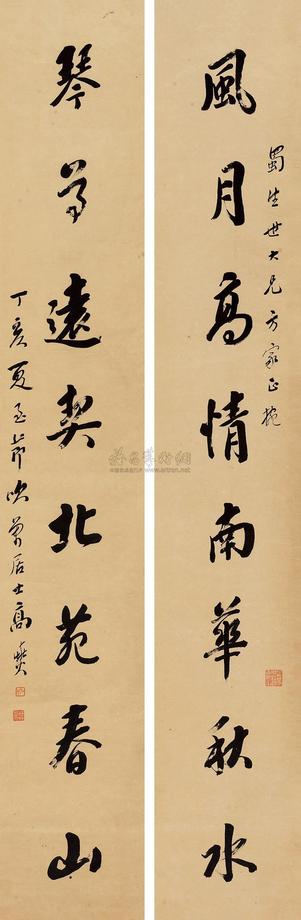 蜀生世大兄方家正
風月高情南華秋水
琴尊遠契北苑春山
丁亥夏至節吹萬居士高燮
雅昌藝術網